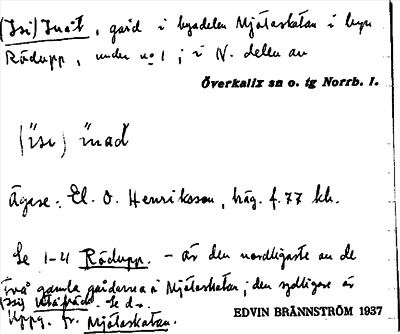 (Isi) Inåt, gård i byadelen Mjölaskatan i byn
Rödupp, under no 1; i N. delen av
Överkalix sn o. tg Norrb. l.
(ïsi) ïnað
Ägare: El. O. Henriksson, häg. f. 77 kh.
Se 1-4 Rödupp. - är den nordligaste av de
två gamla gårdarna i Mjölaskatan; den sydligare är
(Isi) Utåt. Se d.o.
Uppg. fr. Mjölaskatan.
EDVIN BRÄNNSTRÖM 1937